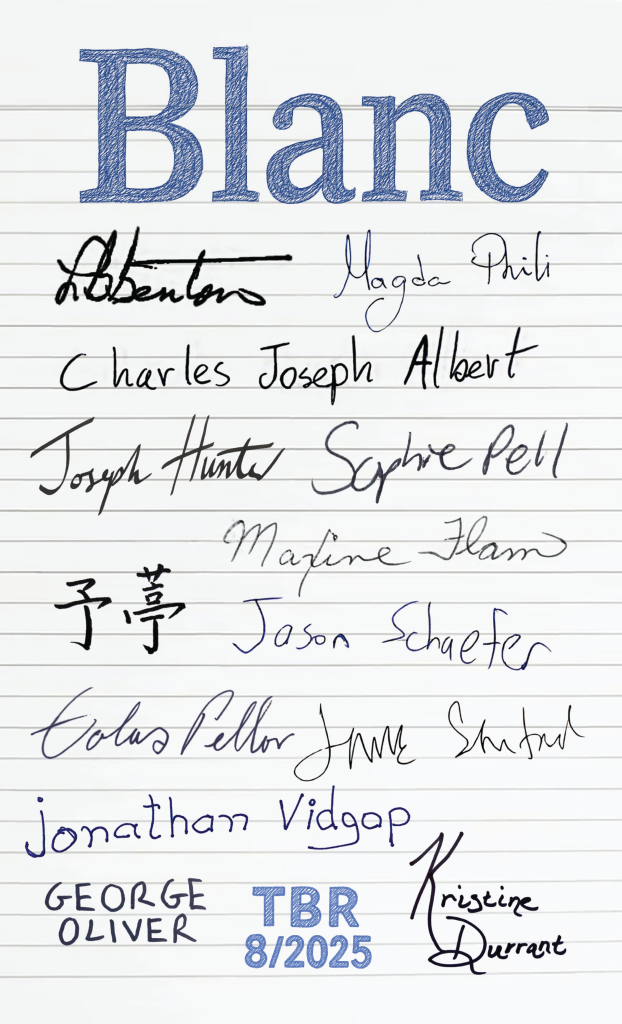 Blanc
Magda Phili
Charles Joseph Albert
Joseph Hunter Sophie Pell
Maxine Flam
予葶 Jason Schaefer
Eolas Pellor
Jonathan Vidgop
GEORGE
OLIVER
TBR
8/2025
Kristine
Durrant